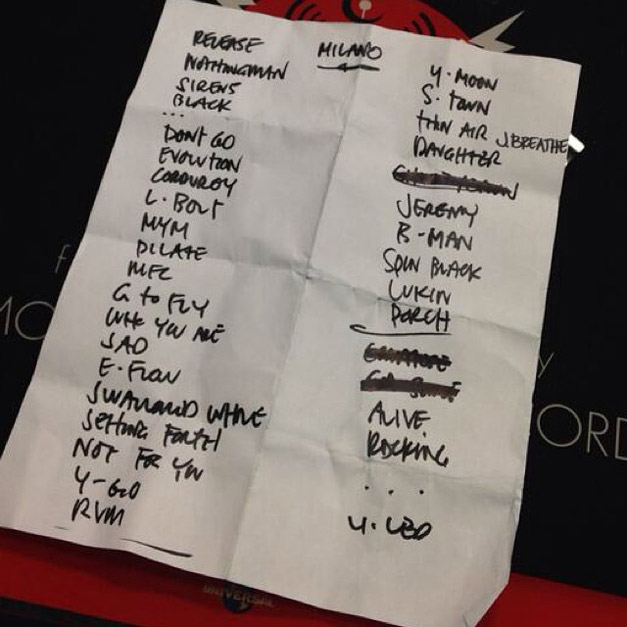 MILANO
RELEASE
NOTHINGMAN
SIRENS
BLACK
...
DONT GO
EVOLUTION
CORDUROY
L. BOLT
MYM
DILATE
MFC
G to FLY
WHO YOU ARE
SAD
E-FLOW
SWALLOWED WHOLE
SETTING FORTH
NOT FOR YOU
Y-GO
RVM
Y. MOON
S. TOWN
THIN AIR
JBREATHE
DAUGHTER
JEREMY
B-MAN
SPIN BLACK
LUKIN
PORCH
ALIVE
ROCKING
...
Y. LED
UNIVERSAL